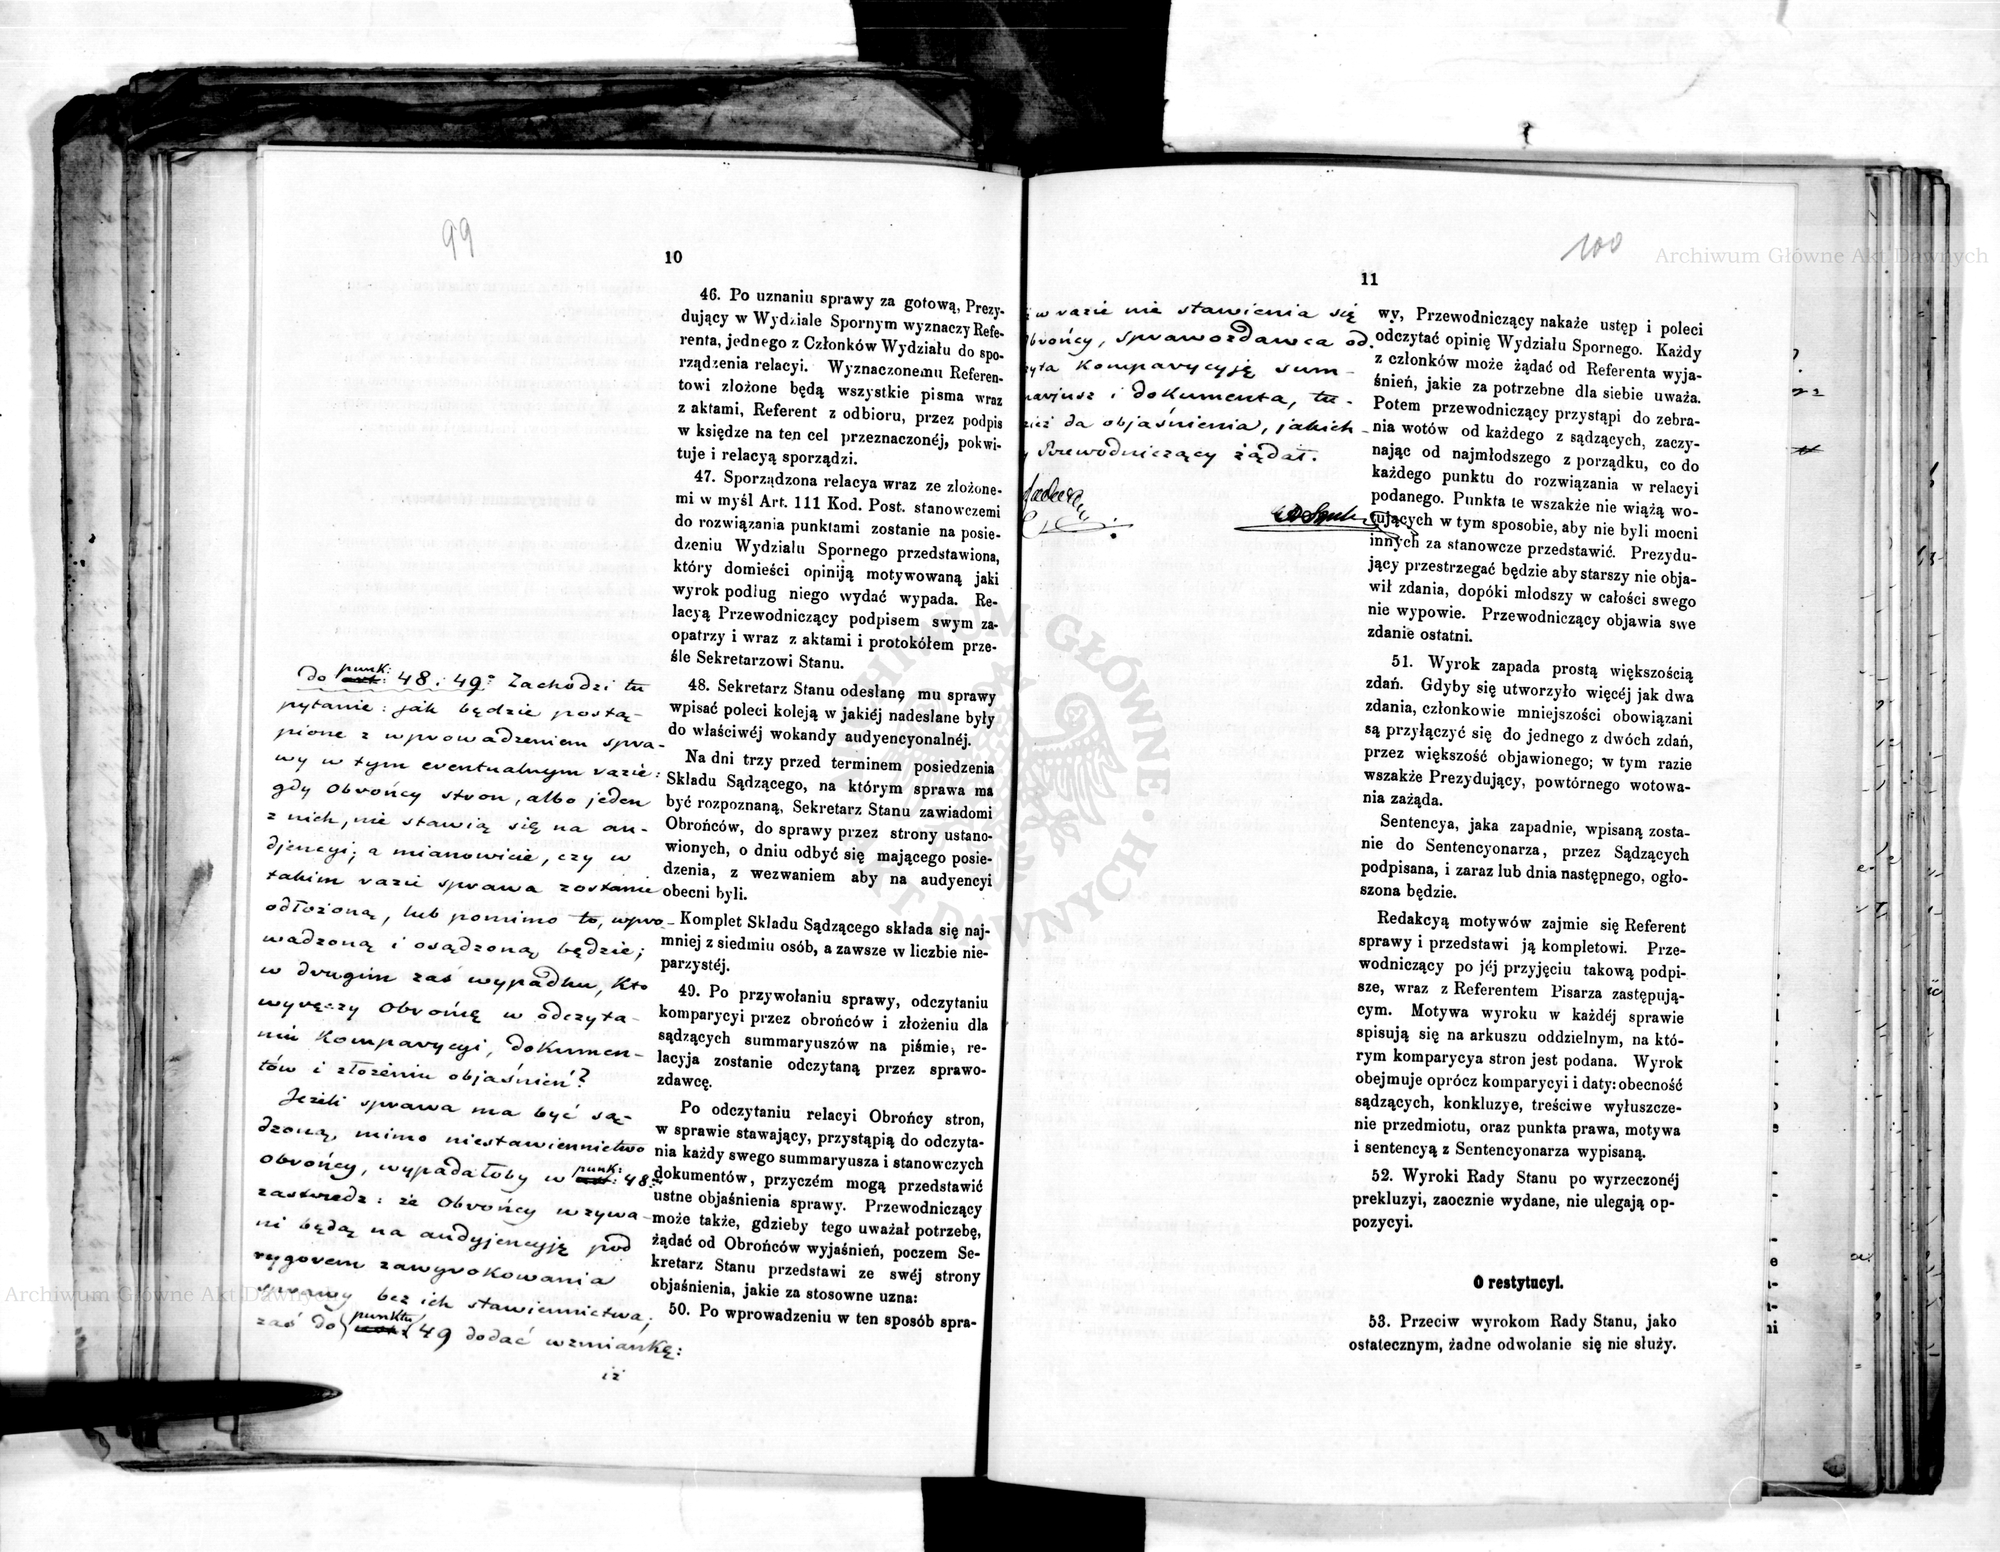 99
10
46. Po uznaniu sprawy za gotową, Prezy-
dujący w Wydziale Spornym wyznaczy Refe-
renta, jednego z Członków Wydziału do spo-
rządzenia relacyi. Wyznaczonemu Referen-
towi złożone będą wszystkie pisma wraz
z aktami, Referent z odbioru, przez podpis
w księdze na ten cel przeznaczonéj, pokwi-
tuje i relacyą sporządzi.
47. Sporządzona relacya wraz ze złożone-
mi w myśl Art. 111 Kod. Post. stanowczemi
do rozwiązania punktami zostanie na posie-
dzeniu Wydziału Spornego przedstawiona,
który domieści opiniją motywowaną jaki
wyrok podług niego wydać wypada. Re-
lacyą Przewodniczący podpisem swym za-
opatrzy i wraz z aktami i protokółem prze-
śle Sekretarzowi Stanu.
48. Sekretarz Stanu odesłanę mu sprawy
wpisać poleci koleją w jakiéj nadesłane były
do właściwéj wokandy audyencyonalnéj.
Na dni trzy przed terminem posiedzenia
Składu Sądzącego, na którym sprawa ma
być rozpoznaną, Sekretarz Stanu zawiadomi
Obrońców, do sprawy przez strony ustano-
wionych, o dniu odbyć się mającego posie-
dzenia, z wezwaniem aby na audyencyi
obecni byli.
Komplet Składu Sądzącego składa się naj-
mniej z siedmiu osób, a zawsze w liczbie nie-
parzystéj.
49. Po przywołaniu sprawy, odczytaniu
komparycyi przez obrońców i złożeniu dla
sądzących summaryuszów na piśmie, re-
lacyja zostanie odczytaną przez sprawo-
zdawcę.
Po odczytaniu relacyi Obrońcy stron,
w sprawie stawający, przystąpią do odczyta-
nia każdy swego summaryusza i stanowczych
dokumentów, przyczém mogą przedstawić
ustne objaśnienia sprawy. Przewodniczący
może także, gdzieby tego uważał potrzebę,
żądać od Obrońców wyjaśnień, poczem Se-
kretarz Stanu przedstawi ze swéj strony
objaśnienia, jakie za stosowne uzna:
50. Po wprowadzeniu w ten sposób spra-
punk:
do art: 48 i 49: Zachodzi tu
pytanie: jak będzie postą-
pione z wprowadzeniem spra-
wy w tym eventualnym razie:
gdy Obrońcy stron, albo jeden
z nich, nie stawią się na au-
djencyi; a mianowicie, czy w
takim razie sprawa zostanie
odłożoną, lub pomimo to, wpro-
wadzoną i osądzoną będzie;
w drugim zaś wypadku, Kto
wyręczy Obrońcę w odczyta-
niu Komparycyi, dokumen-
tów i złożeniu objaśnień?
Jeżeli sprawa ma być są-
dzoną, mimo niestawiennictwo
obrońcy, wypadałoby w punk: art: 48:
zastrzedz: że Obrońcy wzywa-
ni będą na audyjencyję pod
rygorem zawyrokowania
sprawy bez ich stawiennictwa;
zaś do punktu 49 dodać wzmiankę:
iż
100
11
w razie nie stawienia się
brońcy, sprawozdawca od-
yta Komparycyję sum-
aryusz i dokumenta, tu-
zież da objaśnienia, jakich-
y Przewodniczący żądał.
wy, Przewodniczący nakaże ustęp i poleci
odczytać opinię Wydziału Spornego. Każdy
z członków może żądać od Referenta wyja-
śnień, jakie za potrzebne dla siebie uważa.
Potem przewodniczący przystąpi do zebra-
nia wotów od każdego z sądzących, zaczy-
nając od najmłodszego z porządku, co do
każdego punktu do rozwiązania w relacyi
podanego. Punkta te wszakże nie wiążą wo-
tujących w tym sposobie, aby nie byli mocni
innych za stanowcze przedstawić. Prezydu-
jący przestrzegać będzie aby starszy nie obja-
wił zdania, dopóki młodszy w całości swego
nie wypowie. Przewodniczący objawia swe
zdanie ostatni.
51. Wyrok zapada prostą większością
zdań. Gdyby się utworzyło więcéj jak dwa
zdania, członkowie mniejszości obowiązani
są przyłączyć się do jednego z dwóch zdań,
przez większość objawionego; w tym razie
wszakże Prezydujący, powtórnego wotowa-
nia zażąda.
Sentencya, jaka zapadnie, wpisaną zosta-
nie do Sentencyonarza, przez Sądzących
podpisana, i zaraz lub dnia następnego, ogło-
szona będzie.
Redakcyą motywów zajmie się Referent
sprawy i przedstawi ją kompletowi. Prze-
wodniczący po jéj przyjęciu takową podpi-
sze, wraz z Referentem Pisarza zastępują-
cym. Motywa wyroku w każdéj sprawie
spisują się na arkuszu oddzielnym, na któ-
rym komparycya stron jest podana. Wyrok
obejmuje oprócz komparycyi i daty: obecność
sądzących, konkluzye, treściwe wyłuszcze-
nie przedmiotu, oraz punkta prawa, motywa
i sentencyą z Sentencyonarza wypisaną.
52. Wyroki Rady Stanu po wyrzeczonéj
prekluzyi, zaocznie wydane, nie ulegają op-
pozycyi.
O restytucyi.
53. Przeciw wyrokom Rady Stanu, jako
ostatecznym, żadne odwołanie się nie służy.
Archiwum Główne Akt Dawnych
Archiwum Główne Akt Dawnych
ARCHIWUM GŁÓWNE AKT DAWNYCH